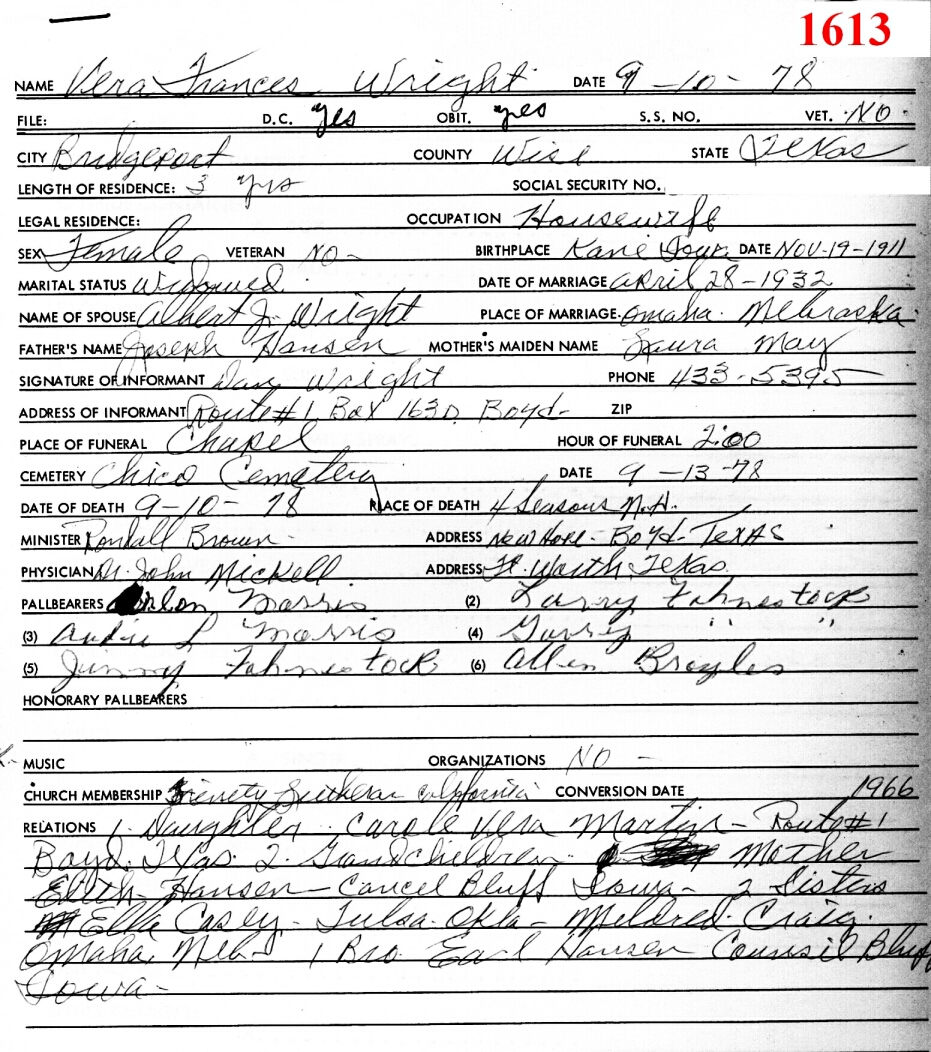 1613
NAME Vera Frances Wright DATE 9-10-78
FILE: D.C. yes OBIT. yes S.S. NO. VET. NO
CITY Bridgeport COUNTY Wise STATE Texas
LENGTH OF RESIDENCE: 3 yrs SOCIAL SECURITY NO.
LEGAL RESIDENCE: OCCUPATION Housewife
SEX Female VETERAN NO- BIRTHPLACE Kane Iowa DATE NOV-19-1911
MARITAL STATUS Widowed DATE OF MARRIAGE April 28-1932
NAME OF SPOUSE Albert J. Wright PLACE OF MARRIAGE Omaha. Nebraska.
FATHER'S NAME Joseph Hansen MOTHER'S MAIDEN NAME Laura May
SIGNATURE OF INFORMANT Wright PHONE 433-5395
ADDRESS OF INFORMANT Route#1 Box 163D Boyd- ZIP
PLACE OF FUNERAL Chapel HOUR OF FUNERAL 2:00
CEMETERY Chico Cemetery DATE 9-13-78
DATE OF DEATH 9-10-78 PLACE OF DEATH 4 Seasons N.H.
MINISTER Rondall Brown- ADDRESS New Hope- Boyd- Texas
PHYSICIAN Dr. John Mickell. ADDRESS Ft. Worth, Texas.
PALLBEARERS Morris (2) Larry Fahnestock
(3) L Morris (4) " "
(5) Jimmy Fahnestock (6) Allen Broyles
HONORARY PALLBEARERS
MUSIC ORGANIZATIONS NO -
CHURCH MEMBERSHIP Trinity Lutheran California CONVERSION DATE 1966
RELATIONS 1. Daughter - Carole Vera Martin - Route#1
Boyd. Texas. 2. Grandchildren Mother
Edith Hansen - Cancel Bluff Iowa - 2 Sisters
Ella Casey - Tulsa. Okla - Mildred Craig.
Omaha, Neb - 1 Bro Earl Hansen Counsil Bluff
Iowa -